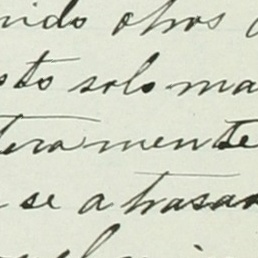 nido otros
sto solo ma
teramente
se atrasar